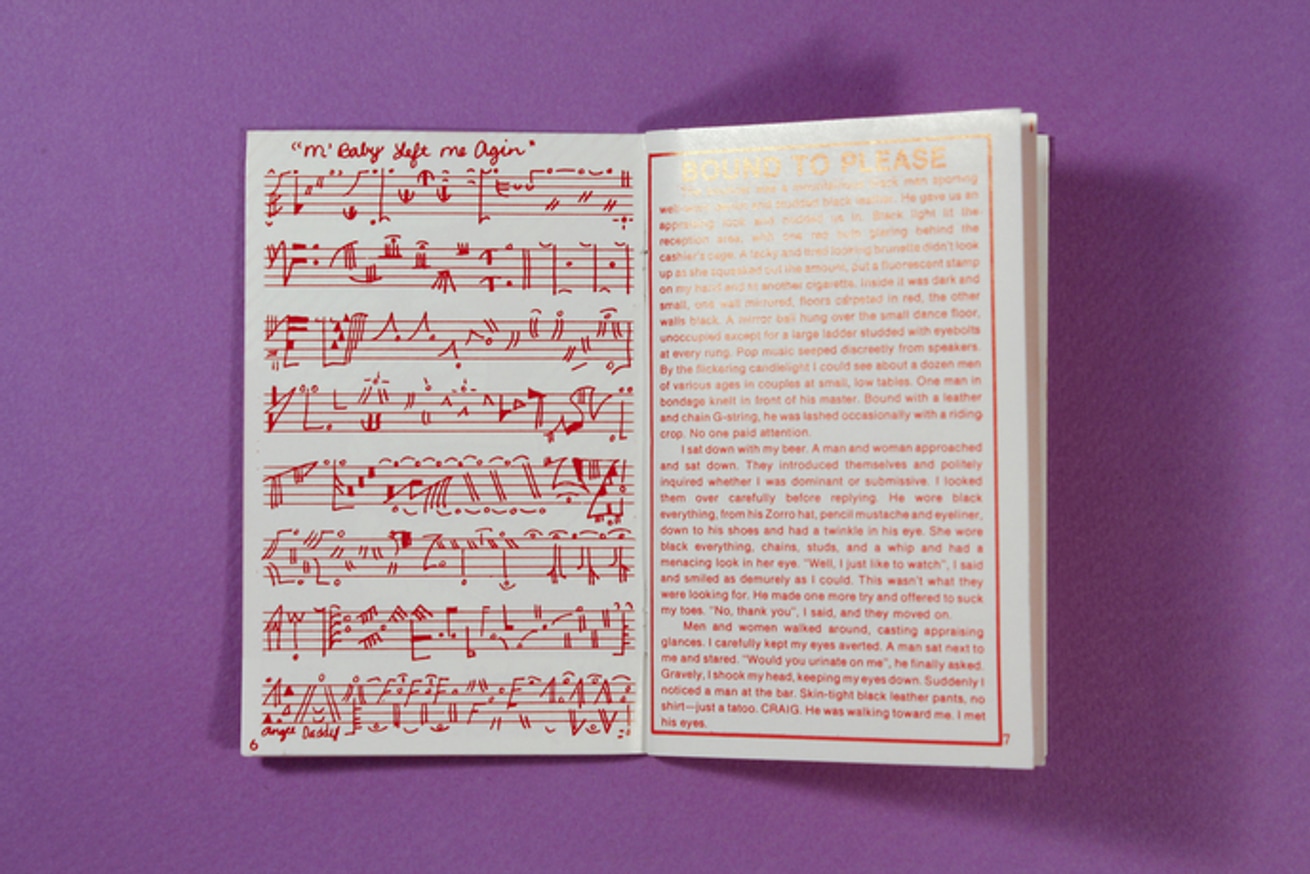 "M' Baby Left me Agin"
Angee Daddy
6
BOUND TO PLEASE
black men sporting
well black leather. He gave us an
appraising look and us in. Black light lit the
reception area, with one red bulb glaring behind the
cashier's cage. A tacky and tired looking brunette didn't look
up as she squeaked out the amount, put a fluorescent stamp
on my hand and lit another cigarette. Inside it was dark and
small, one wall mirrored, floors carpeted in red, the other
walls black. A mirror ball hung over the small dance floor,
unoccupied except for a large ladder studded with eyebolts
at every rung. Pop music seeped discreetly from speakers.
By the flickering candlelight I could see about a dozen men
of various ages in couples at small, low tables. One man in
bondage knelt in front of his master. Bound with a leather
and chain G-string, he was lashed occasionally with a riding
crop. No one paid attention.
I sat down with my beer. A man and woman approached
and sat down. They introduced themselves and politely
inquired whether I was dominant or submissive. I looked
them over carefully before replying. He wore black
everything, from his Zorro hat, pencil mustache and eyeliner,
down to his shoes and had a twinkle in his eye. She wore
black everything, chains, studs, and a whip and had a
menacing look in her eye. "Well, I just like to watch", I said
and smiled as demurely as I could. This wasn't what they
were looking for. He made one more try and offered to suck
my toes. "No, thank you", I said, and they moved on.
Men and women walked around, casting appraising
glances. I carefully kept my eyes averted. A man sat next to
me and stared. "Would you urinate on me", he finally asked.
Gravely, I shook my head, keeping my eyes down. Suddenly I
noticed a man at the bar. Skin-tight black leather pants, no
shirt—just a tatoo. CRAIG. He was walking toward me. I met
his eyes.
7